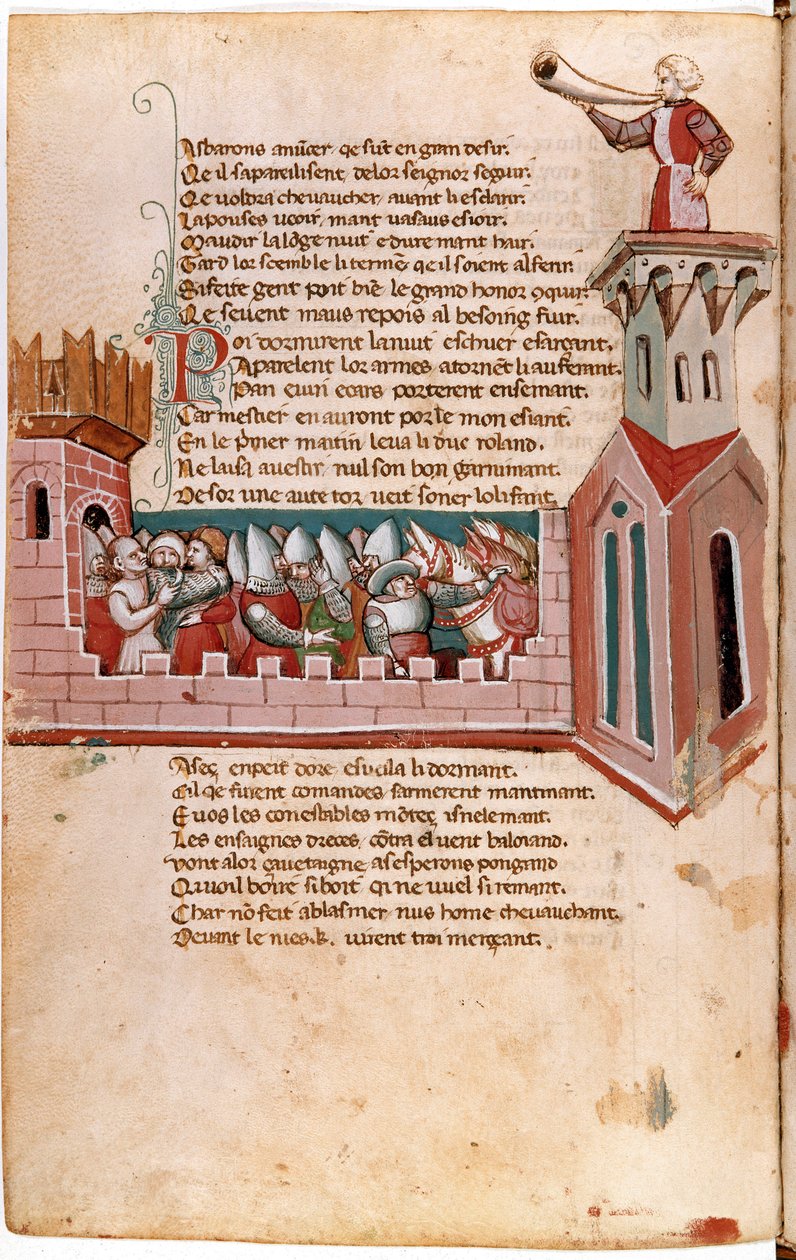 As barons anũcer, qe sũt en gran desir.
Qe il sapareilisent, delor seignor seguir.
Qe voldra chevaucher, avant li esclarir.
La pouses veoir, mant vasaus esioir.
Maudir la lõge nuit e dure mant hair.
Tard lor scemble li termẽ qe il soient al ferir.
Si feite gent poit biẽ le grand honor 9quir.
Qe sevent maus repois al besoing fuir.
Poi dormirent la nuit eschuer e sarçant.
Aparelent lor armes atornẽt li auferant.
Pan e vin e cars porterent ensemant.
Car mestier en auront por le mon esiant.
En le primer maitin leva li duc roland.
Ne laisa avestir, nul son bon garnimant.
De sor une aute tor, veit soner lolifant.
Aseç enpeit dore, e sveila li dormant.
Cil qe furent comandes, sarmerent mantinant.
E vos les conestables mõteç, isnelemant.
Les ensaignes dreces, cõtra el vent baloiand.
vont alor çavetaigne, as esperons poignand
Qi voil boire si boit, qi ne vuel si remant.
Char nõ feit ablasmer, nus home chevauchant.
Devant le nies .k. virent troi merçeant.